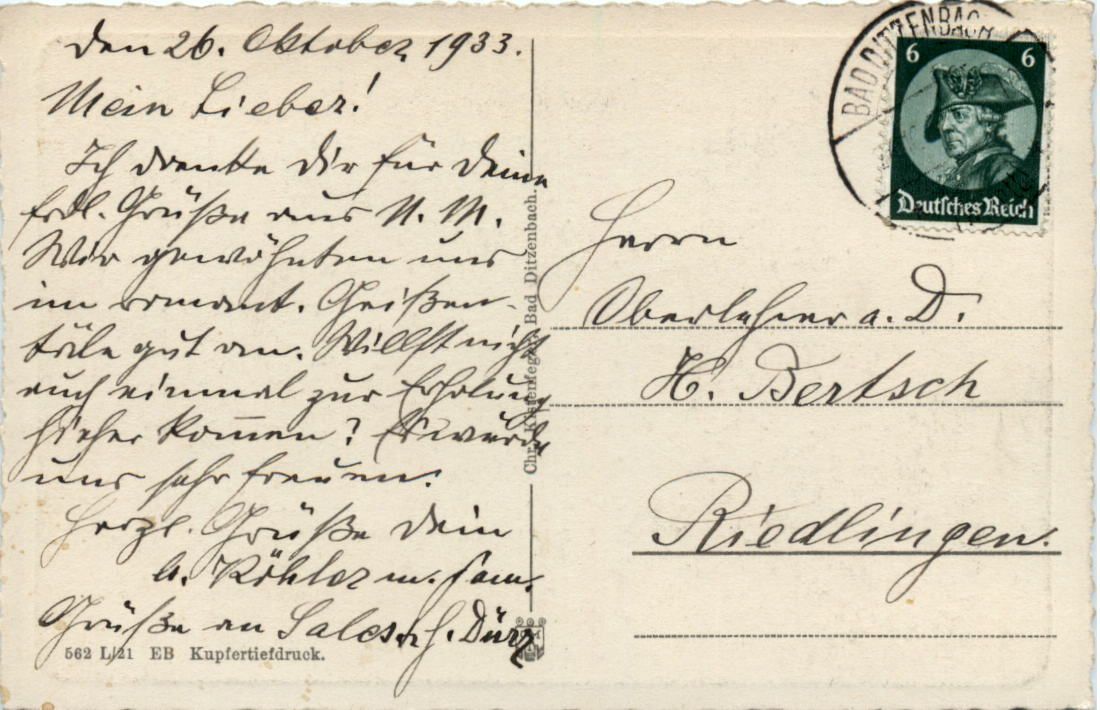 den 26. Oktober 1933.
Mein Lieber!
Ich danke Dir für Deine
frdl. Grüße aus N. M.
Wir gewöhnten uns
im romant. Geißen-
täle gut an. Willst nicht
auch einmal zur Erholung
hieher kommen? Es würde
uns sehr freuen.
Herzl. Grüße Dein
Köhler m. Fam.
Grüße an Dürr
562 L/21 EB Kupfertiefdruck.
Bad Ditzenbach.
BAD DITZENBACH
6 6
Deutsches Reich
Herrn
Oberlehrer a. D.
H. Bertsch
Riedlingen.